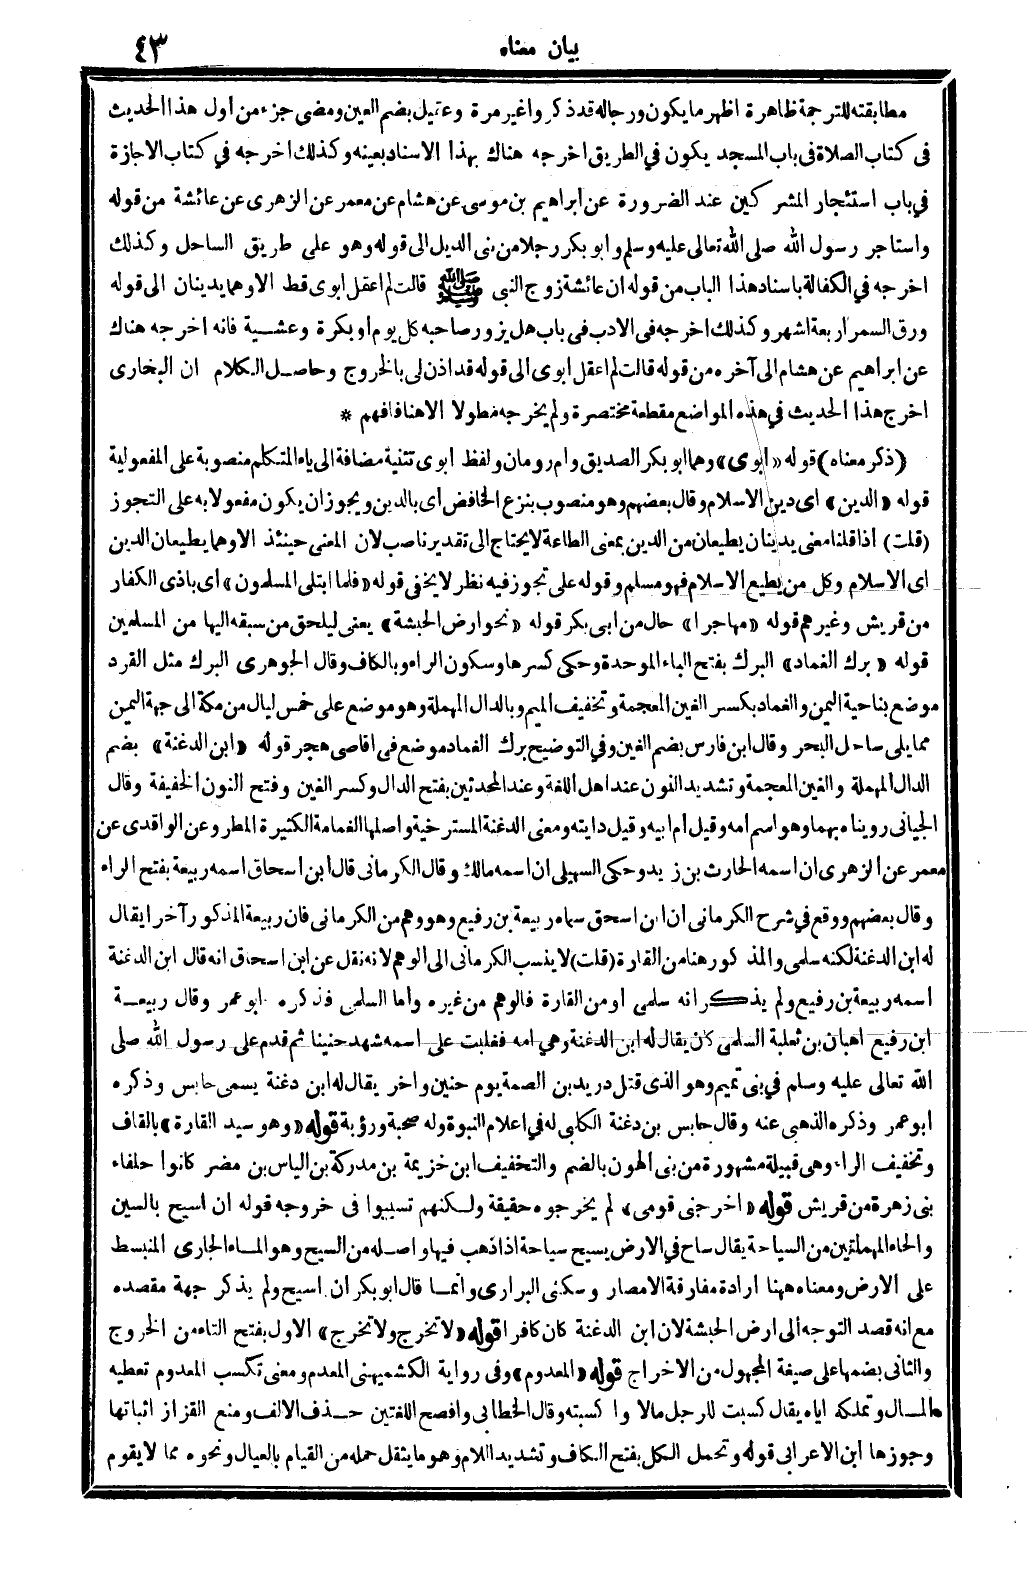 بيان معناه ٤٣
مطابقته للترجمة ظاهرة اظهر ما يكون ورجاله قد ذكروا غير مرة وعقيل بضم العين ومضى جزء من اول هذا الحديث
فى كتاب الصلاة فى باب المسجد يكون في الطريق اخرجه هناك بهذا الاسناد بعينه وكذلك اخرجه في كتاب الاجازة
في باب استئجار المشركين عند الضرورة عن ابراهيم بن موسى عن هشام عن معمر عن الزهرى عن عائشة من قوله
واستاجر رسول الله صلى الله تعالى عليه وسلم وابو بكر رجلا من بنى الديل الى قوله وهو على طريق الساحل وكذلك
اخرجه في الكفالة باسناد هذا الباب من قوله ان عائشة زوج النبى ﷺ قالت لم اعقل ابوى قط الا وهما يدينان الى قوله
ورق السمر اربعة اشهر وكذلك اخرجه فى الادب فى باب هل يزور صاحبه كل يوم او بكرة وعشية فانه اخرجه هناك
عن ابراهيم عن هشام الى آخره من قوله قالت لم اعقل ابوى الى قوله قد اذن لى بالخروج وحاصل الكلام ان البخارى
اخرج هذا الحديث في هذه المواضع مقطعة مختصرة ولم يخرجه مطولا الا هنا فافهم *
(ذكر معناه) قوله «ابوى» وهما ابو بكر الصديق وام رومان ولفظ ابوى تثنية مضافة الى ياء المتكلم منصوبة على المفعولية
قوله «الدين» اى دين الاسلام وقال بعضهم وهو منصوب بنزع الخافض أى بالدين ويجوز ان يكون مفعولا به على التجوز
(قلت) اذا قلنا معنى يدينان يطيعان من الدين بمعنى الطاعة لا يحتاج الى تقدير ناصب لان المعنى حينئذ الا وهما يطيعان الدين
اى الاسلام وكل من يطيع الاسلام فهو مسلم وقوله على تجوز فيه نظر لا يخفى قوله «فلما ابتلى المسلمون» أى باذى الكفار
من قريش وغيرهم قوله «مهاجرا» حال من ابى بكر قوله «نحو ارض الحبشة» يعنى ليلحق من سبقه اليها من المسلمين
قوله «برك الغماد» البرك بفتح الباء الموحدة وحكى كسرها وسكون الراء وبالكاف وقال الجوهرى البرك مثل القرد
موضع بناحية اليمن والغماد بكسر الغين المعجمة وتخفيف الميم وبالدال المهملة وهو موضع على خمس ليال من مكة الى جهة اليمن
مما يلى ساحل البحر وقال ابن فارس بضم الغين وفي التوضيح برك الغماد موضع فى اقاصى هجر قوله «ابن الدغنة» بضم
الدال المهملة والغين المعجمة وتشديد النون عند اهل اللغة وعند المحدثين بفتح الدال وكسر الغين وفتح النون الخفيفة وقال
الجيانى رويناه بهما وهو اسم امه وقيل ام ابيه وقيل دابته ومعنى الدغنة المسترخية واصلها الغمامة الكثيرة المطر وعن الواقدى عن
معمر عن الزهرى ان اسمه الحارث بن زيد وحكى السهيلى ان اسمه مالك وقال الكرمانى قال ابن اسحاق اسمه ربيعة بفتح الراء
وقال بعضهم ووقع في شرح الكرمانى ان ابن اسحق سماه ربيعة بن رفيع وهو وهم من الكرمانى فان ربيعة المذكور آخر ايقال
له ابن الدغنة لكنه سلمى والمذكور هنا من القارة (قلت) لا ينسب الكرمانى الى الوهم لانه نقل عن ابن اسحاق انه قال ابن الدغنة
اسمه ربيعة بن رفيع ولم يذكر انه سلمى او من القارة فالوهم من غيره واما السلمى فذكره ابو عمر وقال ربيعة
ابن رفيع اهبان بن ثعلبة السلمى كان يقال له ابن الدغنة وهي امه فغلبت على اسمه شهد حنينا ثم قدم على رسول الله صلى
الله تعالى عليه وسلم في بنى تميم وهو الذى قتل دريد بن الصمة يوم حنين وآخر يقال له ابن دغنة يسمى حابس وذكره
ابو عمر وذكره الذهبى عنه وقال حابس بن دغنة الكلبى له في اعلام النبوة وله صحبة ورؤية قوله «وهو سيد القارة» بالقاف
وتخفيف الراء وهى قبيلة مشهورة من بنى الهون بالضم والتخفيف ابن خزيمة بن مدركة بن الياس بن مضر كانوا حلفاء
بنى زهرة من قريش قوله «اخرجنى قومى» لم يخرجوه حقيقة ولكنهم تسببوا فى خروجه قوله ان اسيح بالسين
والحاء المهملتين من السياحة يقال ساح في الارض يسيح سياحة اذا ذهب فيها واصله من السيح وهو الماء الجارى المنبسط
على الارض ومعناه ههنا ارادة مفارقة الامصار وسكنى البرارى وانما قال ابو بكر ان اسيح ولم يذكر جهة مقصده
مع انه قصد التوجه الى ارض الحبشة لان ابن الدغنة كان كافرا قوله «لا تخرج ولا تخرج» الاول بفتح التاء من الخروج
والثانى بضمها على صيغة المجهول من الاخراج قوله «المعدوم» وفى رواية الكشميهنى المعدم ومعنى تكسب المعدوم تعطيه
المال وتملكه اياه يقال كسبت للرجل مالا واكسبته وقال الخطابى وافصح اللغتين حذف الالف ومنع القزاز اثباتها
وجوزها ابن الاعرابى قوله وتحمل الكل بفتح الكاف وتشديد اللام وهو ما يثقل حمله من القيام بالعيال ونحوه مما لا يقوم